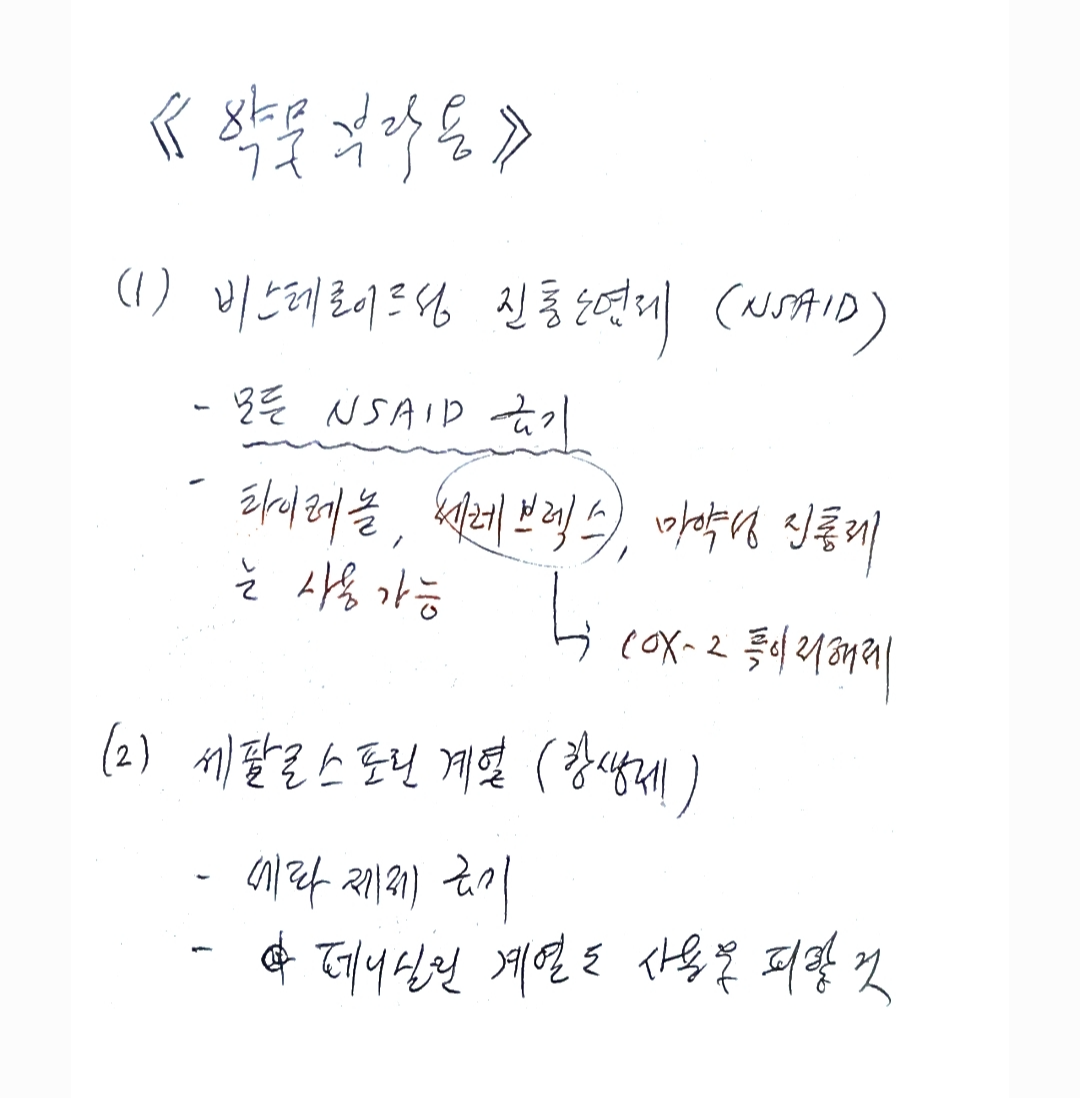 《 약물 부작용 》
(1) 비스테로이드성 진통소염제 (NSAID)
- 모든 NSAID 금기
- 타이레놀, 쎄레브렉스, 마약성 진통제
는 사용 가능
↳ COX-2 특이저해제
(2) 세팔로스포린 계열 (항생제)
- 세파 제제 금기
- 페니실린 계열도 사용을 피할 것